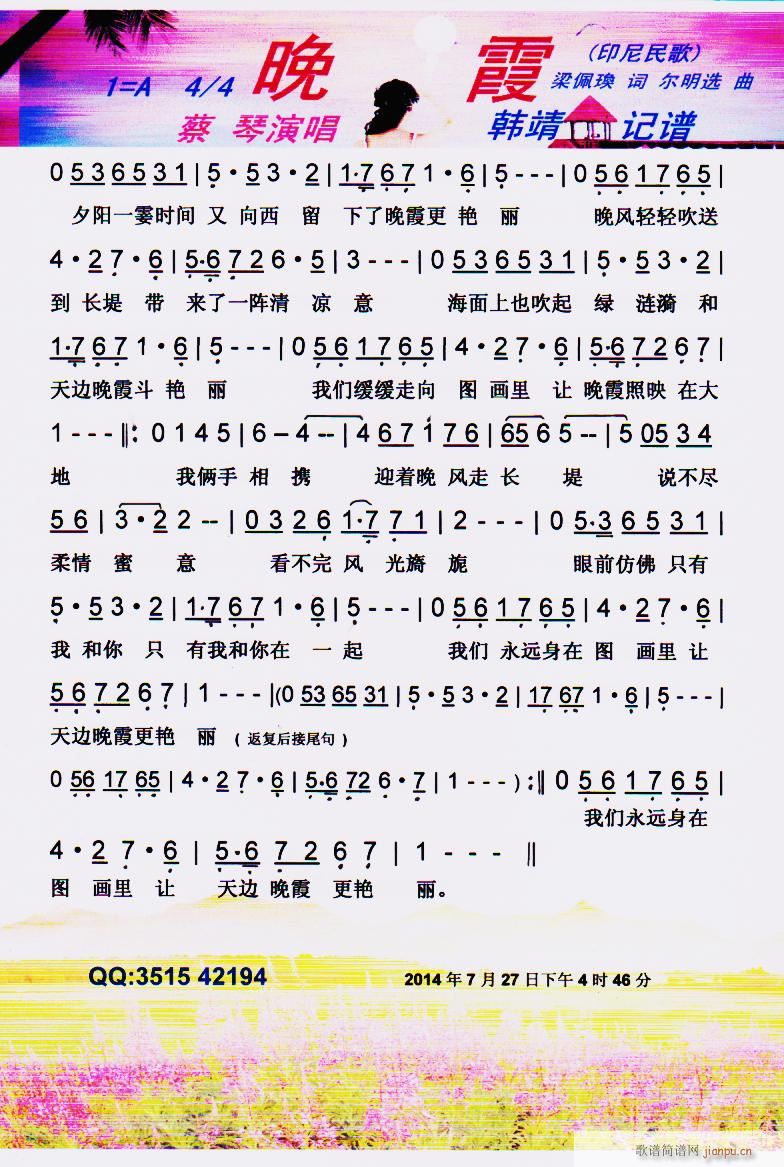 晚 霞 (印尼民歌)
1=A 4/4 梁佩瑍 词 尔明选 曲
蔡 琴演唱 韩靖 记谱
0 5 3 6 5 3 1 | 5 · 5 3 · 2 | 1·7 6 7 1 · 6 | 5 - - - | 0 5 6 1 7 6 5 |
夕阳一霎时间 又 向西 留 下了晚霞更 艳 丽 晚风轻轻吹送
4 · 2 7 · 6 | 5·6 7 2 6 · 5 | 3 - - - | 0 5 3 6 5 3 1 | 5 · 5 3 · 2 |
到 长堤 带 来了一阵清 凉 意 海面上也吹起 绿 涟漪 和
1·7 6 7 1 · 6 | 5 - - - | 0 5 6 1 7 6 5 | 4 · 2 7 · 6 | 5·6 7 2 6 7 |
天边晚霞斗 艳 丽 我们缓缓走向 图 画里 让 晚霞照映 在大
1 - - - ‖: 0 1 4 5 | 6 - 4 - - | 4 6 7 1 7 6 | 65 6 5 - - | 5 05 3 4
地 我俩手 相 携 迎着晚 风走 长 堤 说不尽
5 6 | 3 · 2 2 - - | 0 3 2 6 1·7 7 1 | 2 - - - | 0 5·3 6 5 3 1 |
柔情 蜜 意 看不完 风 光旖 旎 眼前仿佛 只有
5 · 5 3 · 2 | 1·7 6 7 1 · 6 | 5 - - - | 0 5 6 1 7 6 5 | 4 · 2 7 · 6 |
我 和你 只 有我和你在 一 起 我们 永远身在 图 画里 让
5 6 7 2 6 7 | 1 - - - |(0 53 65 31 | 5 · 5 3 · 2 | 17 67 1 · 6 | 5 - - - |
天边晚霞更艳 丽 ( 返复后接尾句 )
0 56 17 65 | 4 · 2 7 · 6 | 5·6 72 6 · 7 | 1 - - - ) :‖ 0 5 6 1 7 6 5 |
我们永远身在
4 · 2 7 · 6 | 5·6 7 2 6 7 | 1 - - - ‖
图 画里 让 天边 晚霞 更艳 丽。
QQ:3515 42194 2014 年 7 月 27 日下午 4 时 46 分
歌谱简谱网 jianpu.cn